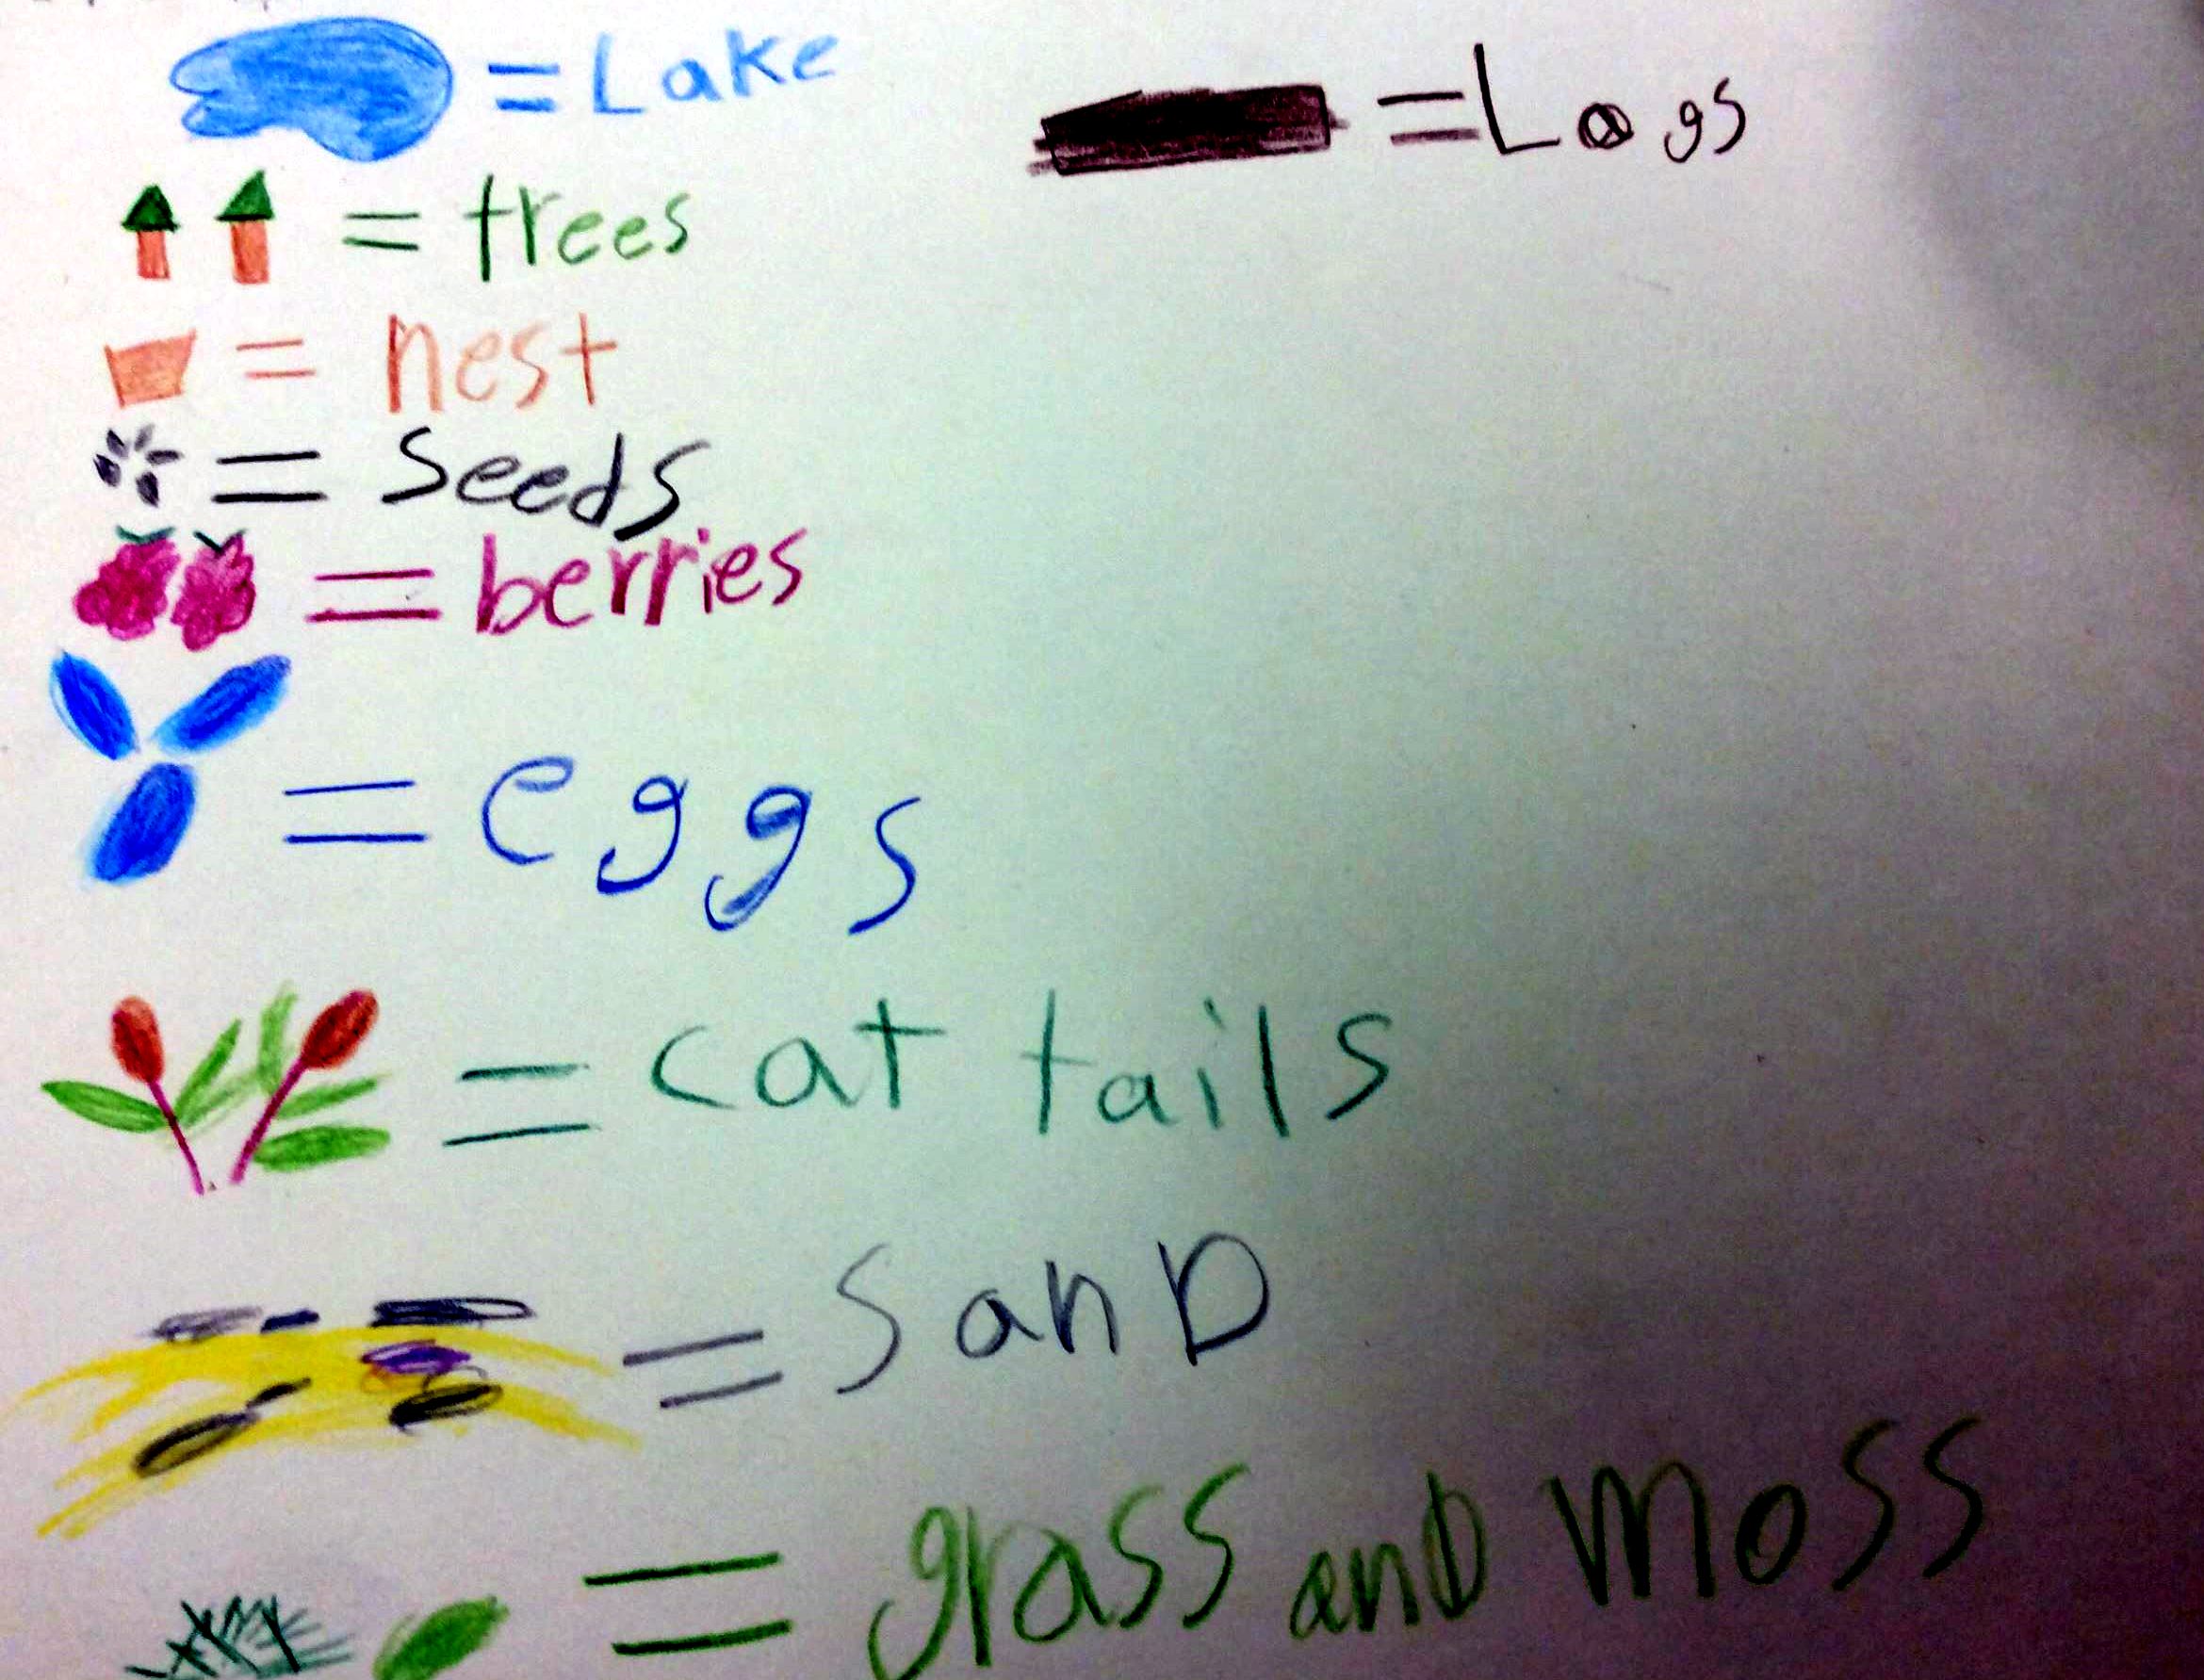 = Lake
= trees
= nest
= seeds
= berries
= eggs
= cat tails
= sanD
= grass anD moss
= Logs